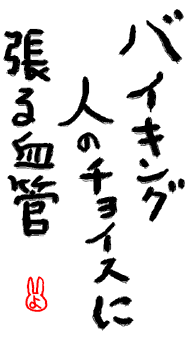 バイキング
人のチョイスに
張る血管
よ